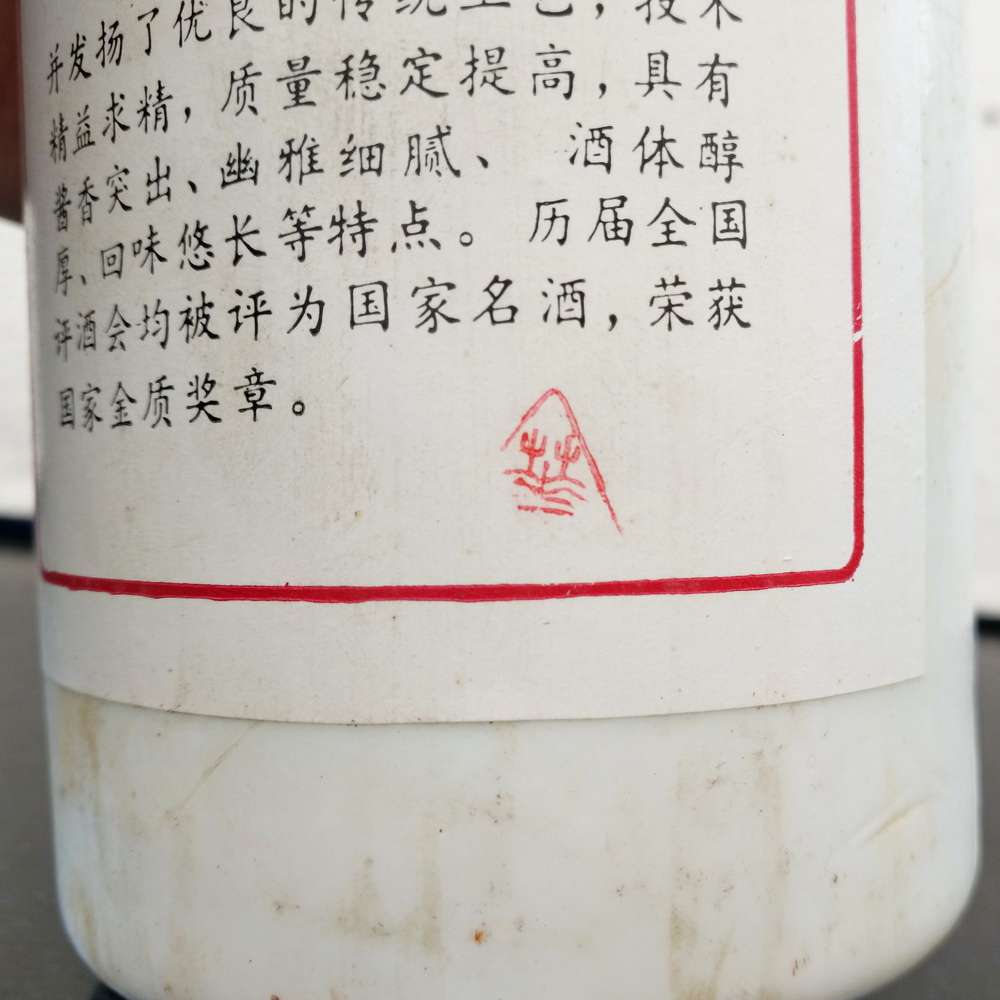 并发扬了优良的传统工艺，技术
精益求精，质量稳定提高，具有
酱香突出、幽雅细腻、酒体醇
厚、回味悠长等特点。历届全国
评酒会均被评为国家名酒，荣获
国家金质奖章。